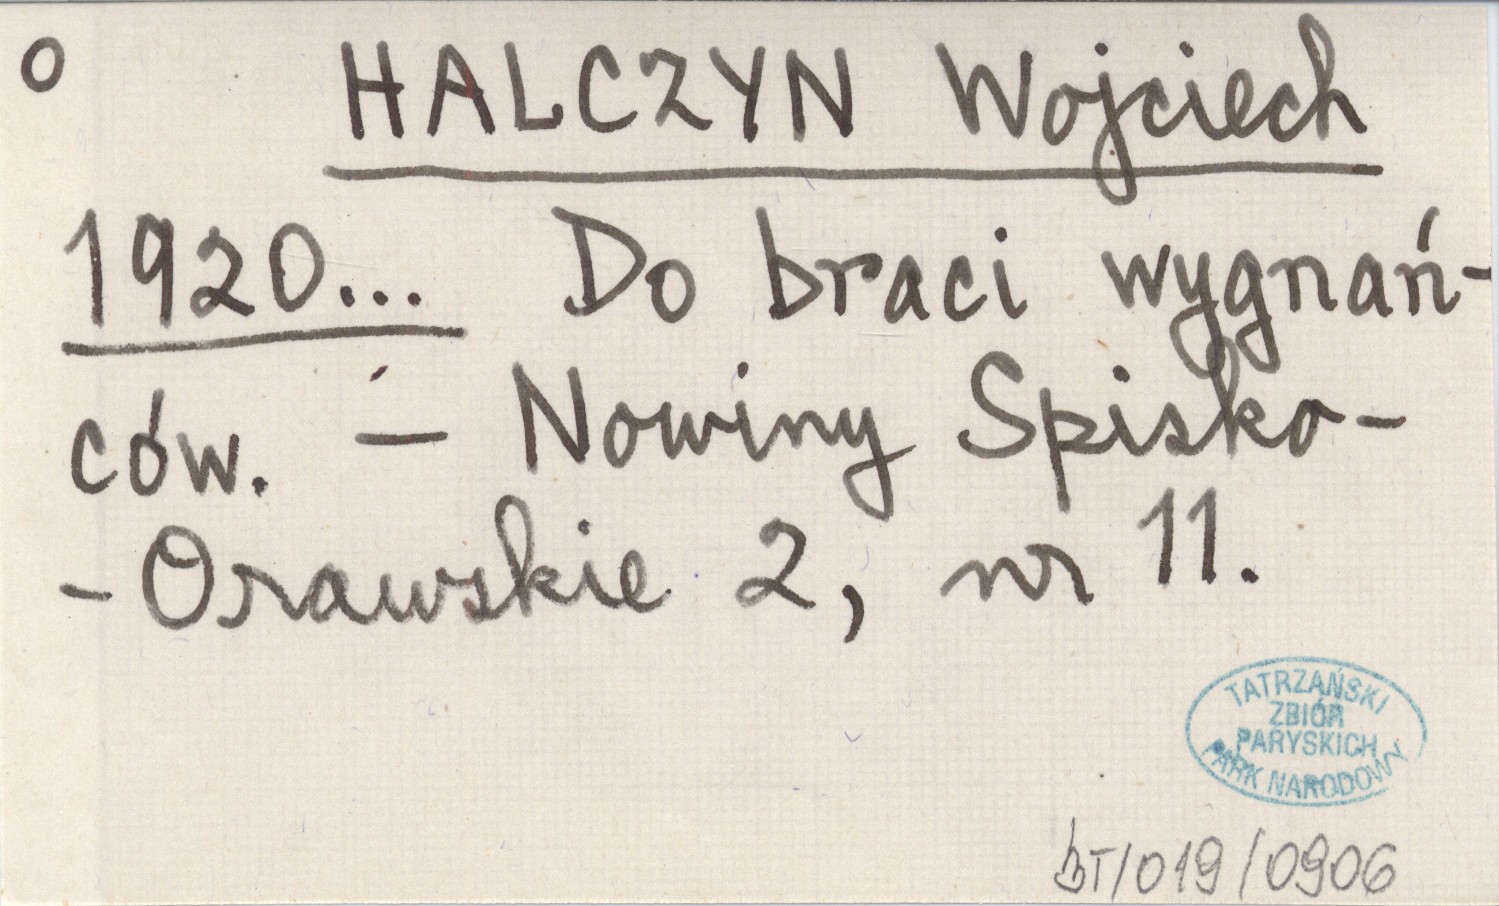 o HALCZYN Wojciech
1920... Do braci wygnań-
ców. — Nowiny Spisko-
-Orawskie 2, nr 11.
TATRZAŃSKI
ZBIÓR
PARYSKICH
PARK NARODOWY
BT/019/0906